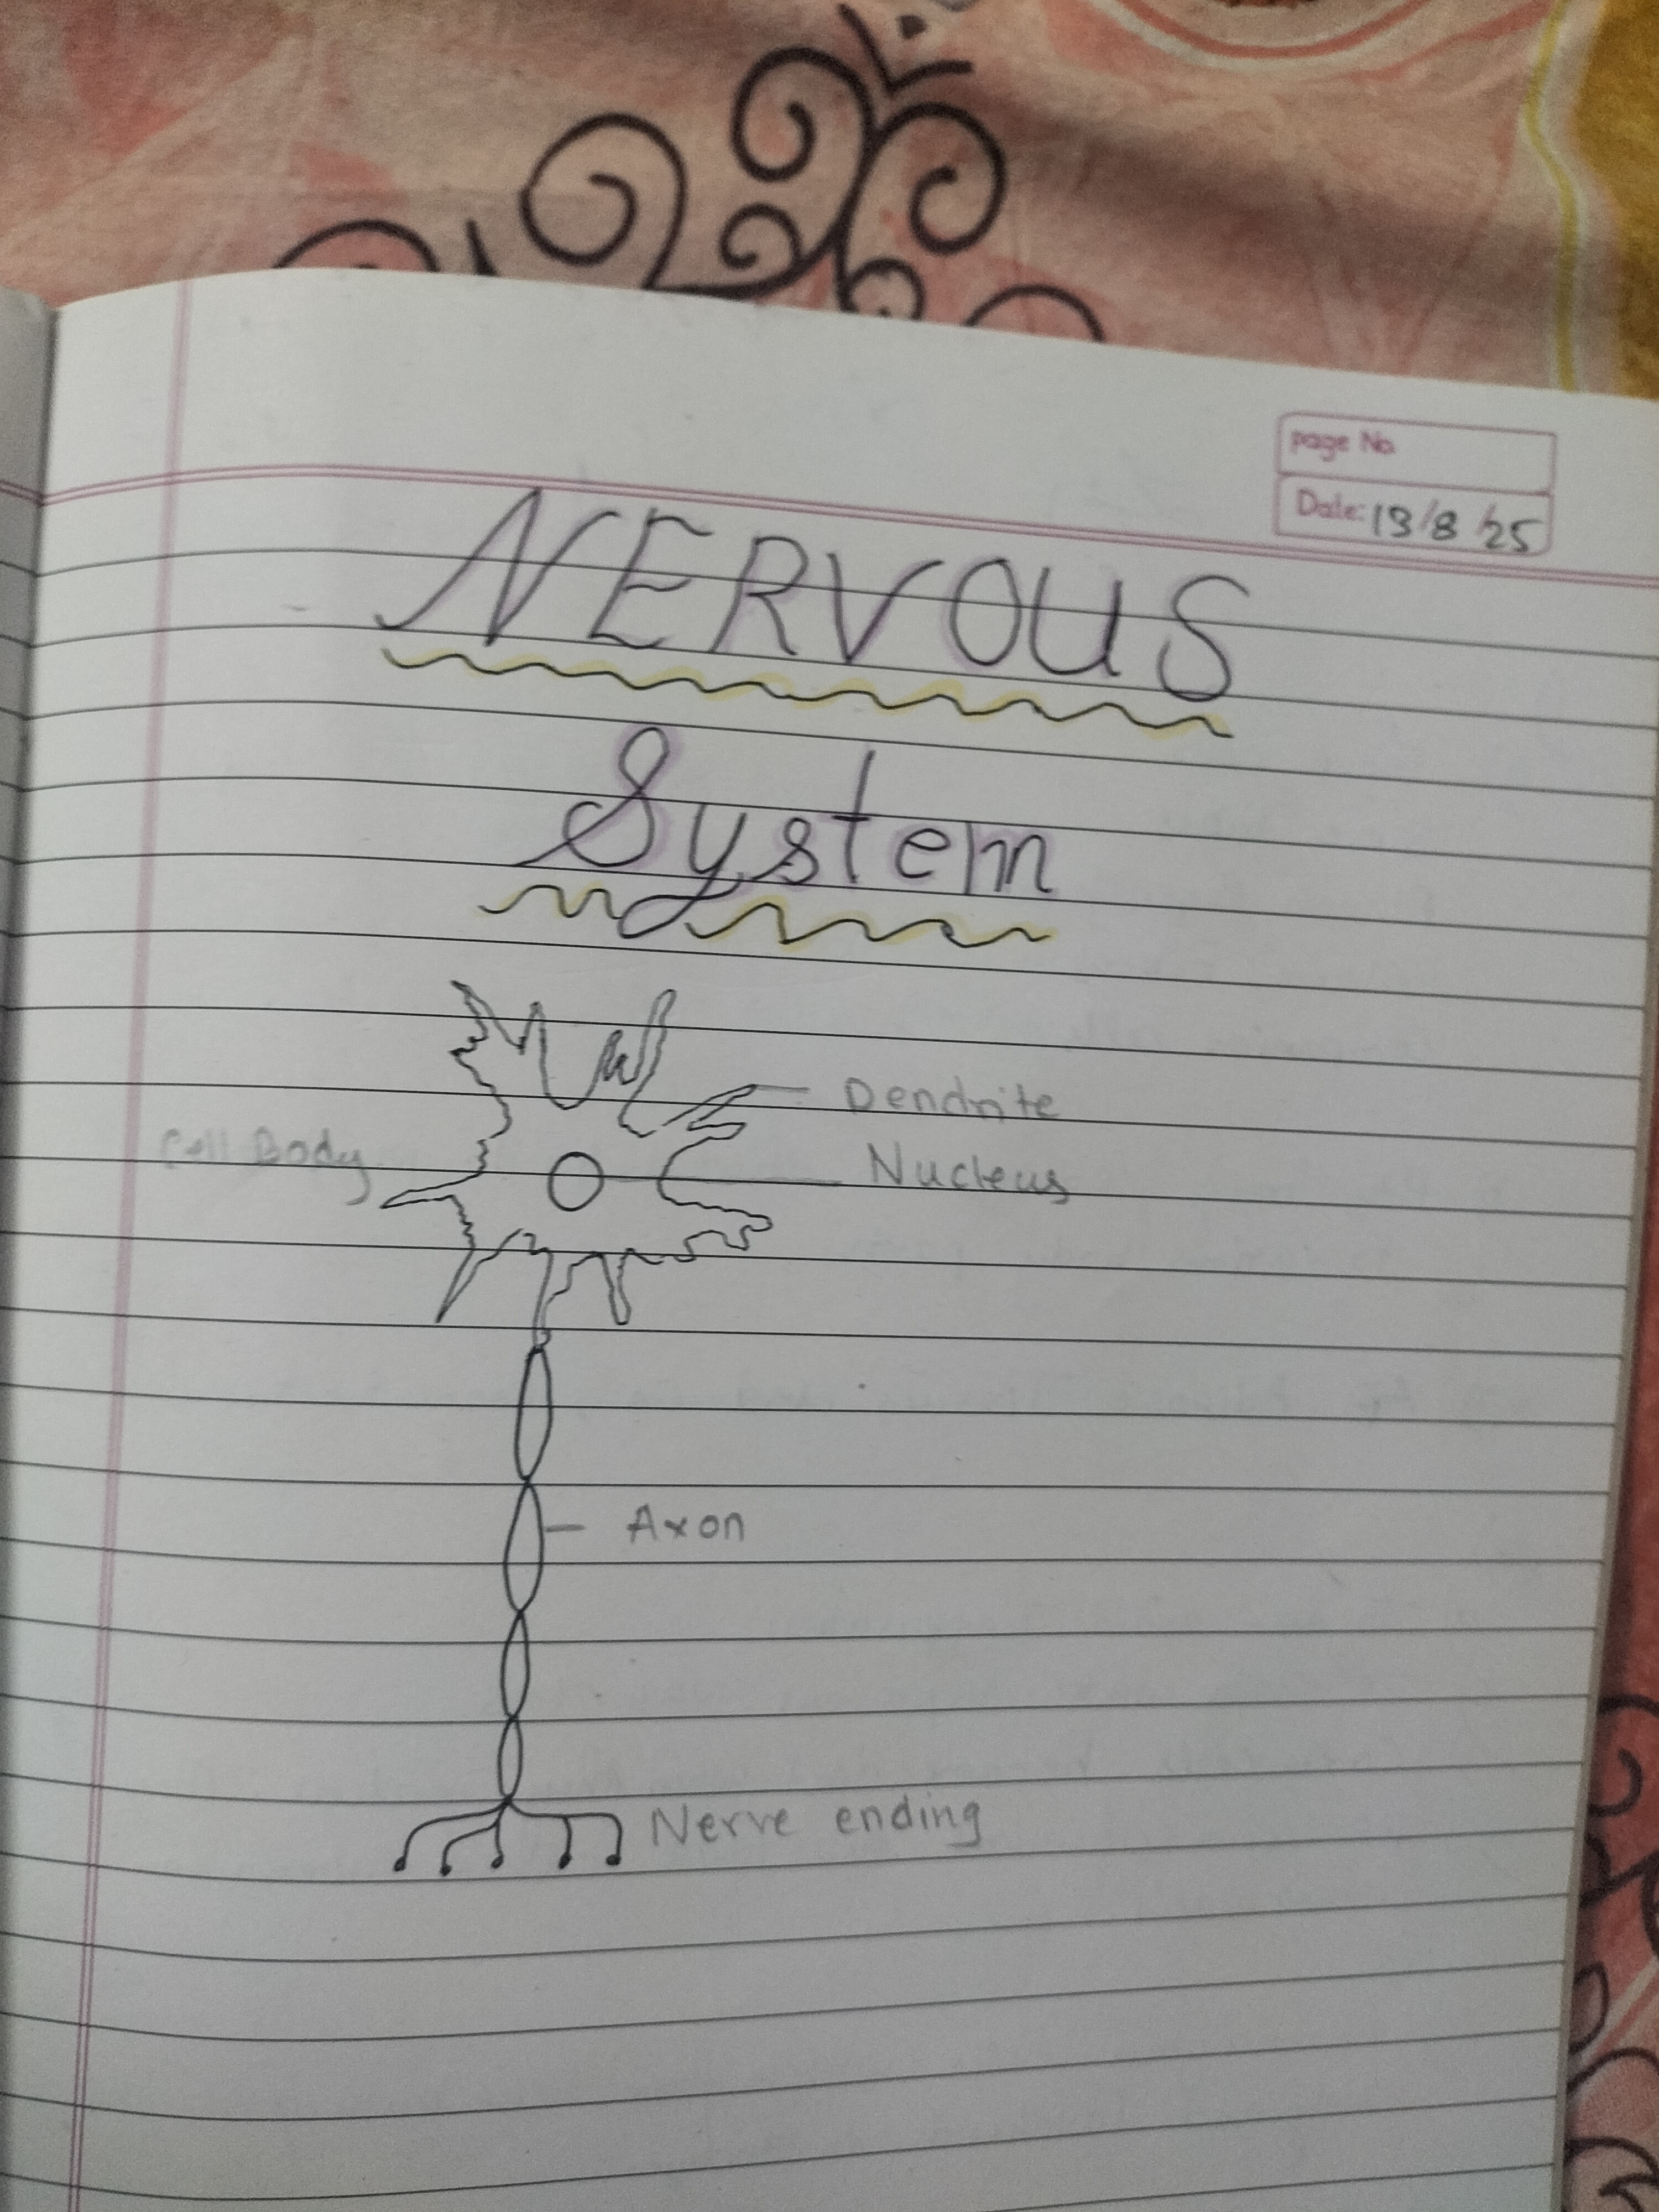 page No
Date: 19/8/25
NERVOUS
System
Dendrite
Cell Body
Nucleus
Axon
Nerve ending